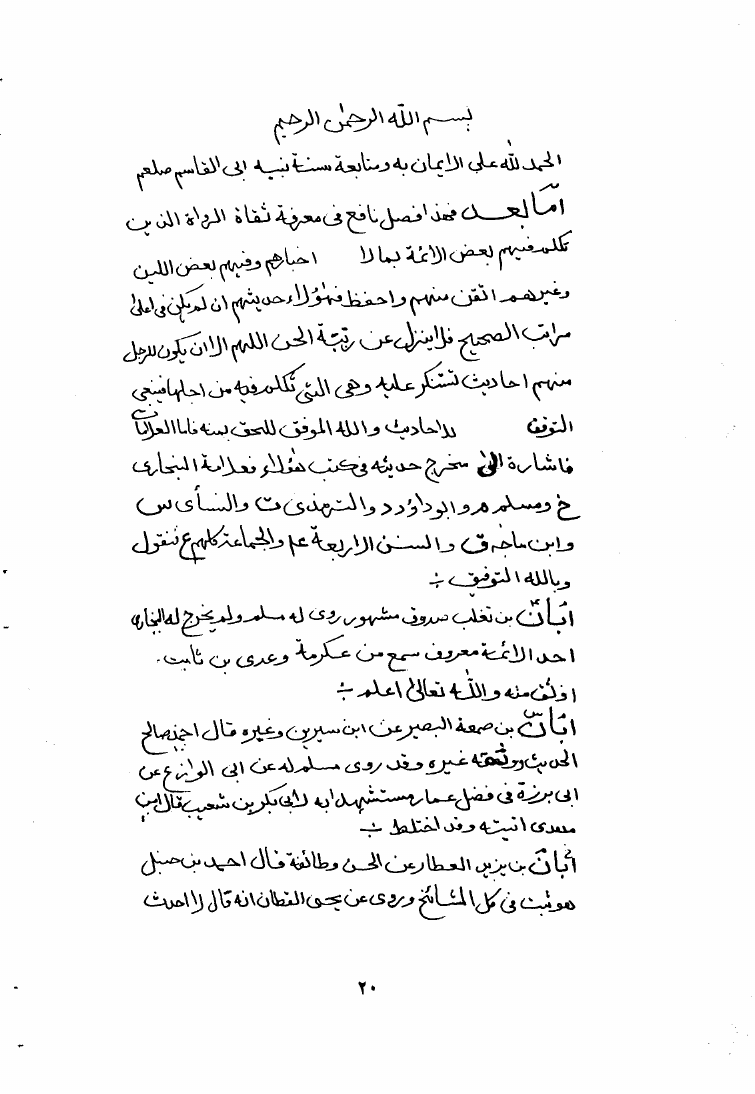 بسم الله الرحمٰن الرحيم
الحمد لله على الايمان به ومتابعة سنة نبيه ابى القاسم صلعم
امّا بعد فهذا فصل نافع فى معرفة ثقاة الرواة الذين
تكلم فيهم بعض الائمة بما لا اخبارهم وفيهم بعض اللين
وغيرهم اتقن منهم واحفظ فهؤلاء حديثهم ان لم يكن فى اعلىٰ
مراتب الصحيح فلا ينزل عن رتبة الحسن اللهم الا ان يكون للرجل
منهم احاديث تستنكر عليه وهى التى تكلم فيه من اجلها فينبغى
التوقف للاحاديث والله الموفق للحق بمنه فاما العلامات
فاشارة الىٰ مخرج حديثه فى كتب هؤلاء فعلامة البخارى
خ ومسلم م وابوداؤد د والترمذى ت والنسأى س
وابن ماجه ق والسنن الاربعة عم والجماعة كلهم ع فنقول
وبالله التوفيق ÷
ابان بن تغلب صدوق مشهور روى له مسلم ولم يخرج له البخارى
احد الائمة معروف سمع من عكرمة وعدى بن ثابت۔
اوثق منه والله تعالىٰ اعلم ÷
ابان بن صمعة البصير عن ابن سيرين وغيره قال احمد صالح
الحديث ووثقه غيره وقد روى مسلم له عن ابى الوازع عن
ابى برزة فى فضل عمار مستشهدا به لابى بكر بن شعيب قال ابن
معدى اتيته وقد اختلط ÷
ابان بن يزيد العطار عن الحسن وطائفة قال احمد بن حنبل
هو ثبت فى كل المشائخ وروى عن يحيى القطان انه قال لا احدث
٢٠